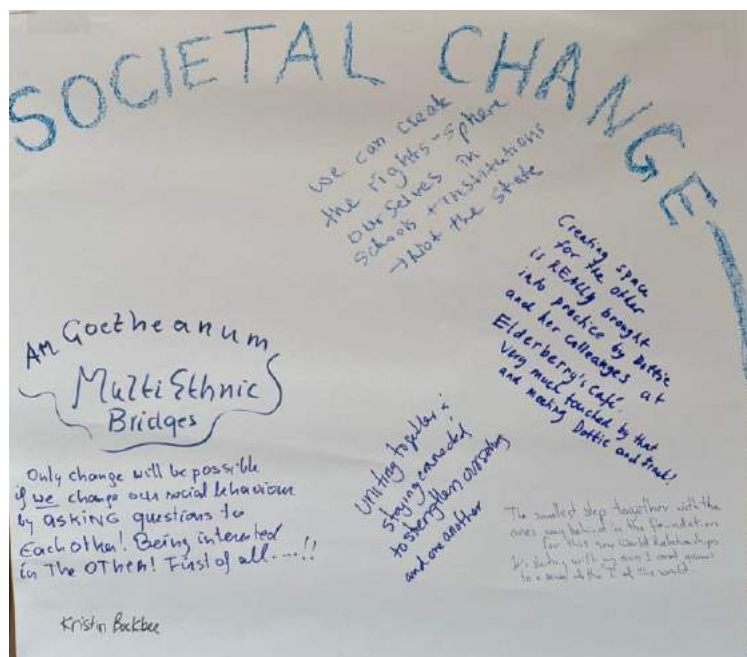 SOCIETAL CHANGE
we can create
the rights-sphere
ourselves in
schools + institutions
→ Not the state
Creating space
for the other
is REALLY brought
into practice by Dottie
and her colleagues at
Elderberry's Café.
Very much touched by that
and meeting Dottie and Frank!
AM Goetheanum
MultiEthnic
Bridges
Only change will be possible
if we change our social behaviour
by asKING questions to
Each other! Being interested
in The OTher! First of all....!!
Uniting together &
staying connected
to strengthen ourselves
and one another
The smallest step together with the
ones behind is the foundation
for this new World Relationships
with my own I and
to a of the I of the world
Kristin